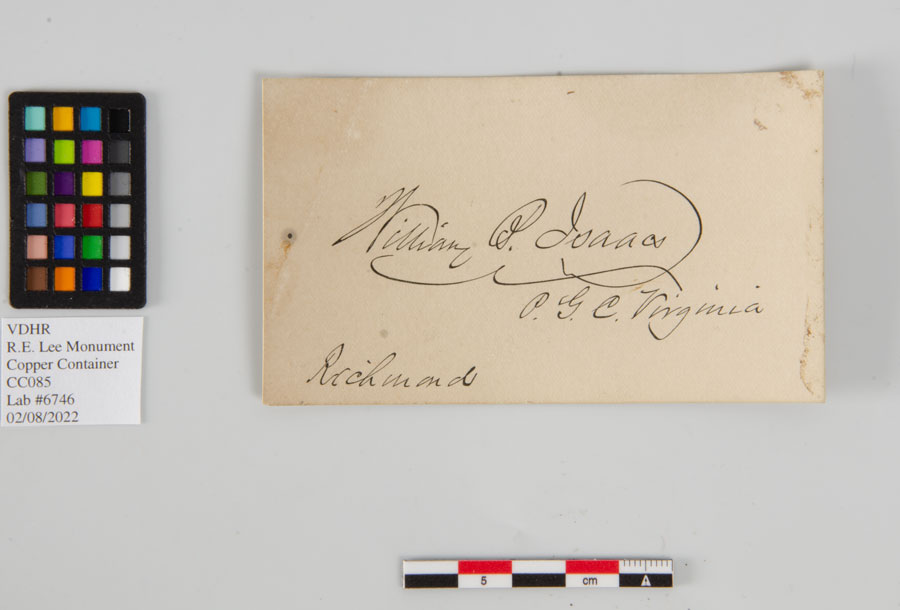 VDHR
R.E. Lee Monument
Copper Container
CC085
Lab #6746
02/08/2022
William P. Isaacs
P. G. C. Virginia
Richmond
5
cm
A